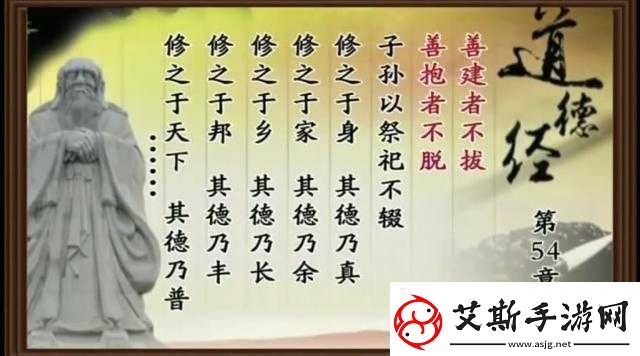 道德经
第54章
善建者不拔
善抱者不脱
子孙以祭祀不辍
修之于身 其德乃真
修之于家 其德乃余
修之于乡 其德乃长
修之于邦 其德乃丰
修之于天下 其德乃普
……
艾斯手游网
www.asjg.net